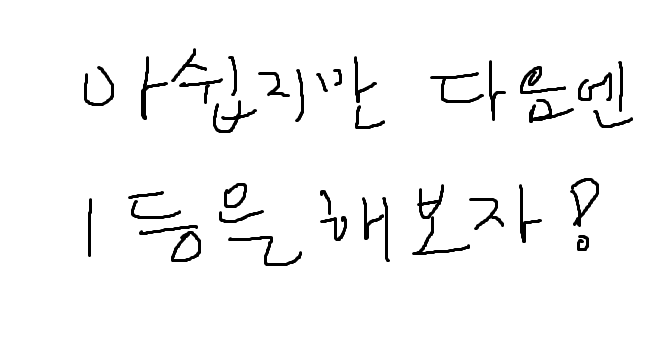 아쉽지만 다음엔
1등은 해보자!